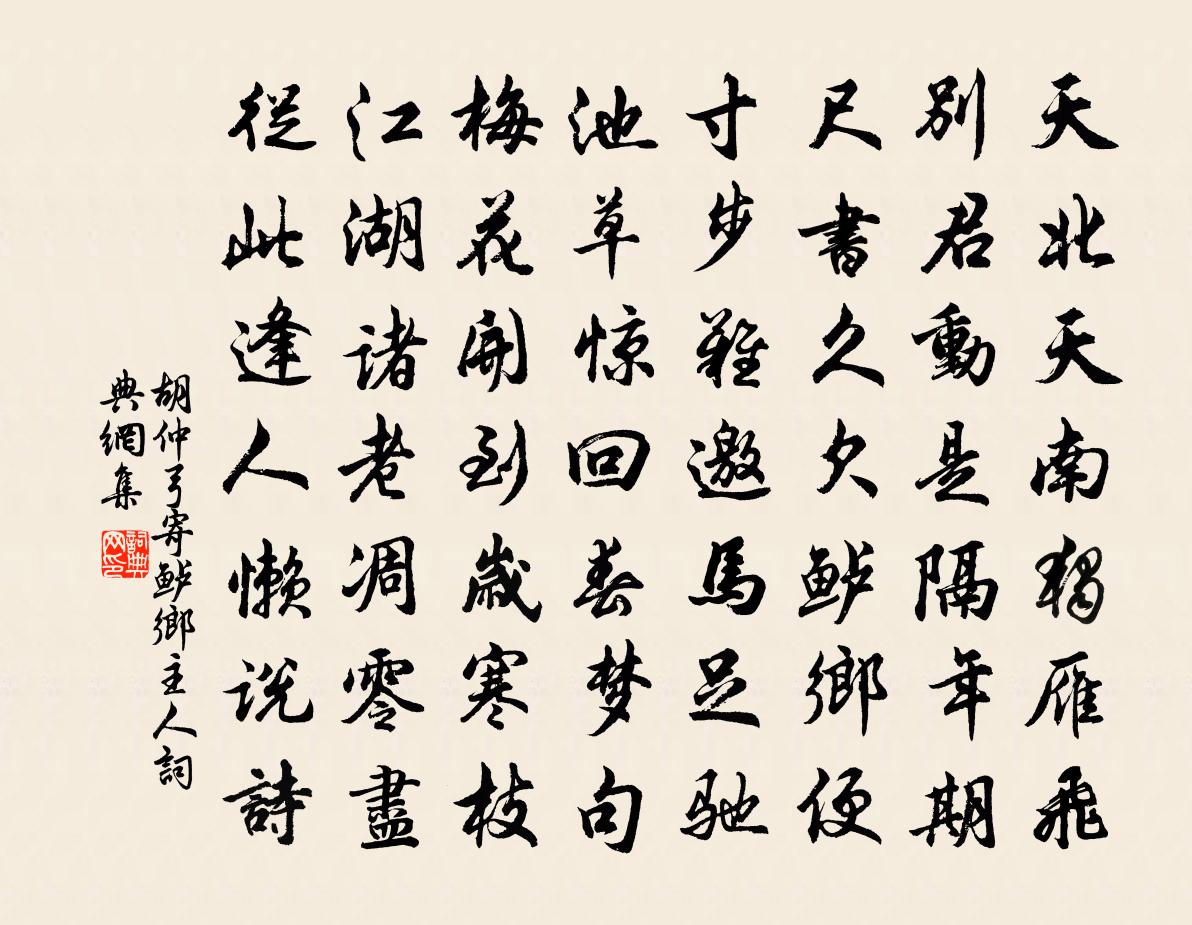 天北天南獨雁飛
別君動是隔年期
尺書久欠鲈鄉便
寸步難邀馬足驰
池草惊回春梦句
梅花開到歲寒枝
江湖诸老凋零盡
從此逢人懒说詩
胡仲弓寄鲈鄉主人詞
典網集
詞典
网印